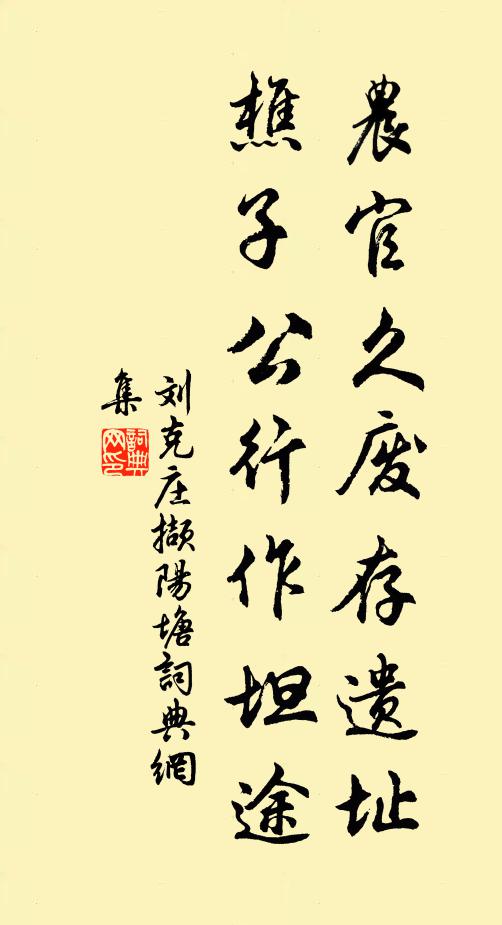 農官久废存遗址
樵子公行作坦途
刘克庄撷陽塘詞典網
集
詞典
网印